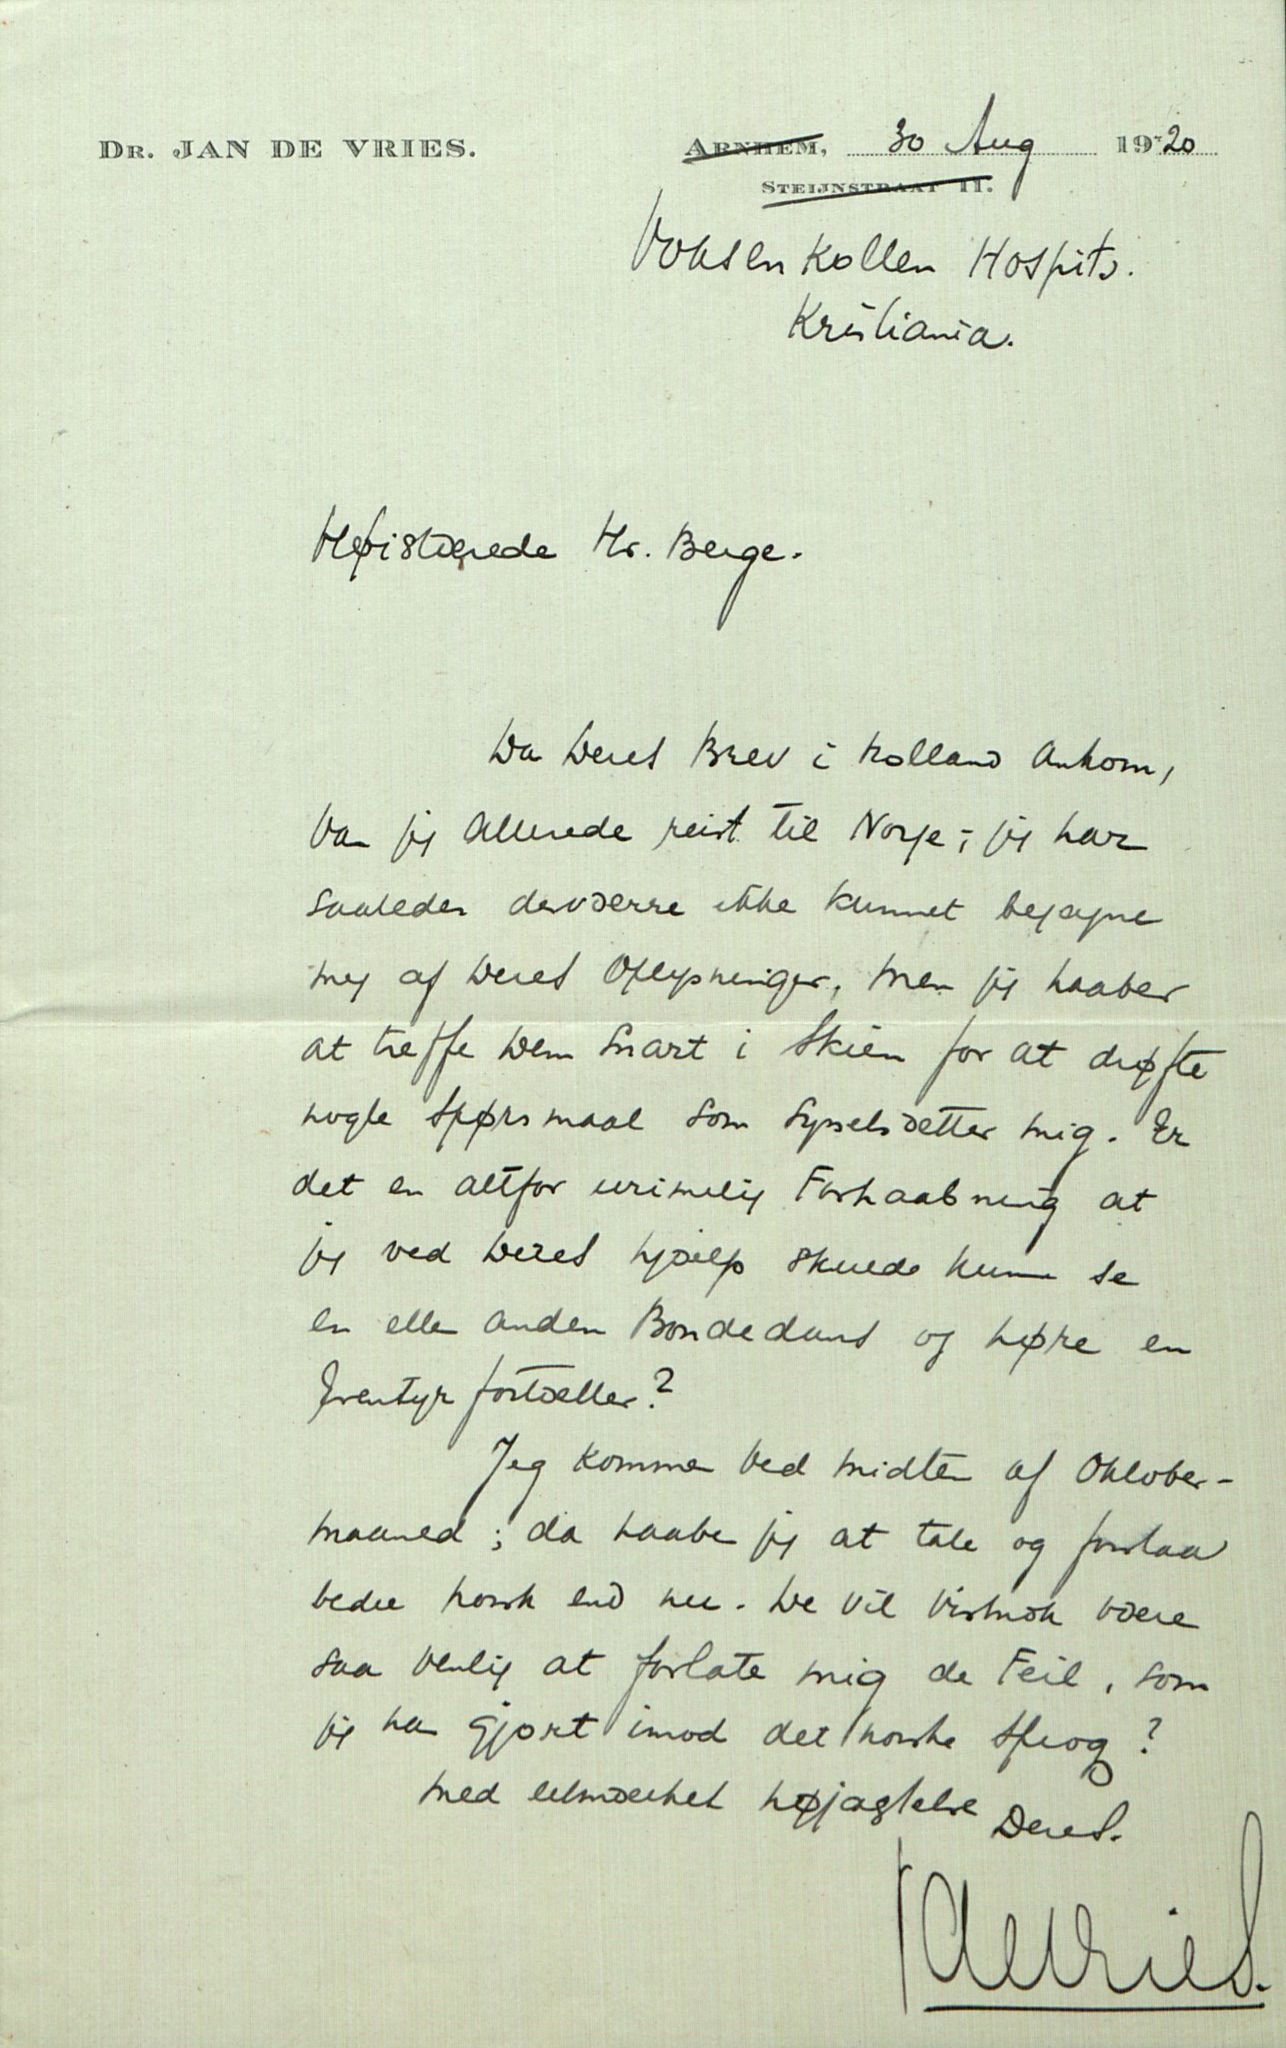 DR. JAN DE VRIES.
ARNHEM, 30 Aug 1920
STEIJNSTRAAT 11.
Voksenkollen Hospits.
Kristiania.
Høistærede Hr. Berge.
Da Deres Brev i Holland ankom,
var jeg allerede reist til Norge; jeg har
saaledes desværre ikke kunnet begagne
mig af Deres Oplysninger, men jeg haaber
at treffe Dem snart i Skien for at drøfte
nogle Spørsmaal som sysselsætter mig. Er
det en altfor urimelig Forhaabning at
jeg ved Deres hjælp skulde kunne se
en eller anden Bondedans og høre en
Eventyrfortæller?
Jeg kommer ved midten af Oktober-
maaned; da haaber jeg at tale og forstaa
bedre norsk end nu. De vil vistnok være
saa venlig at forlate mig de Feil, som
jeg har gjort imod det norske Sprog?
med utmærket højagtelse Deres.
JdeVries.